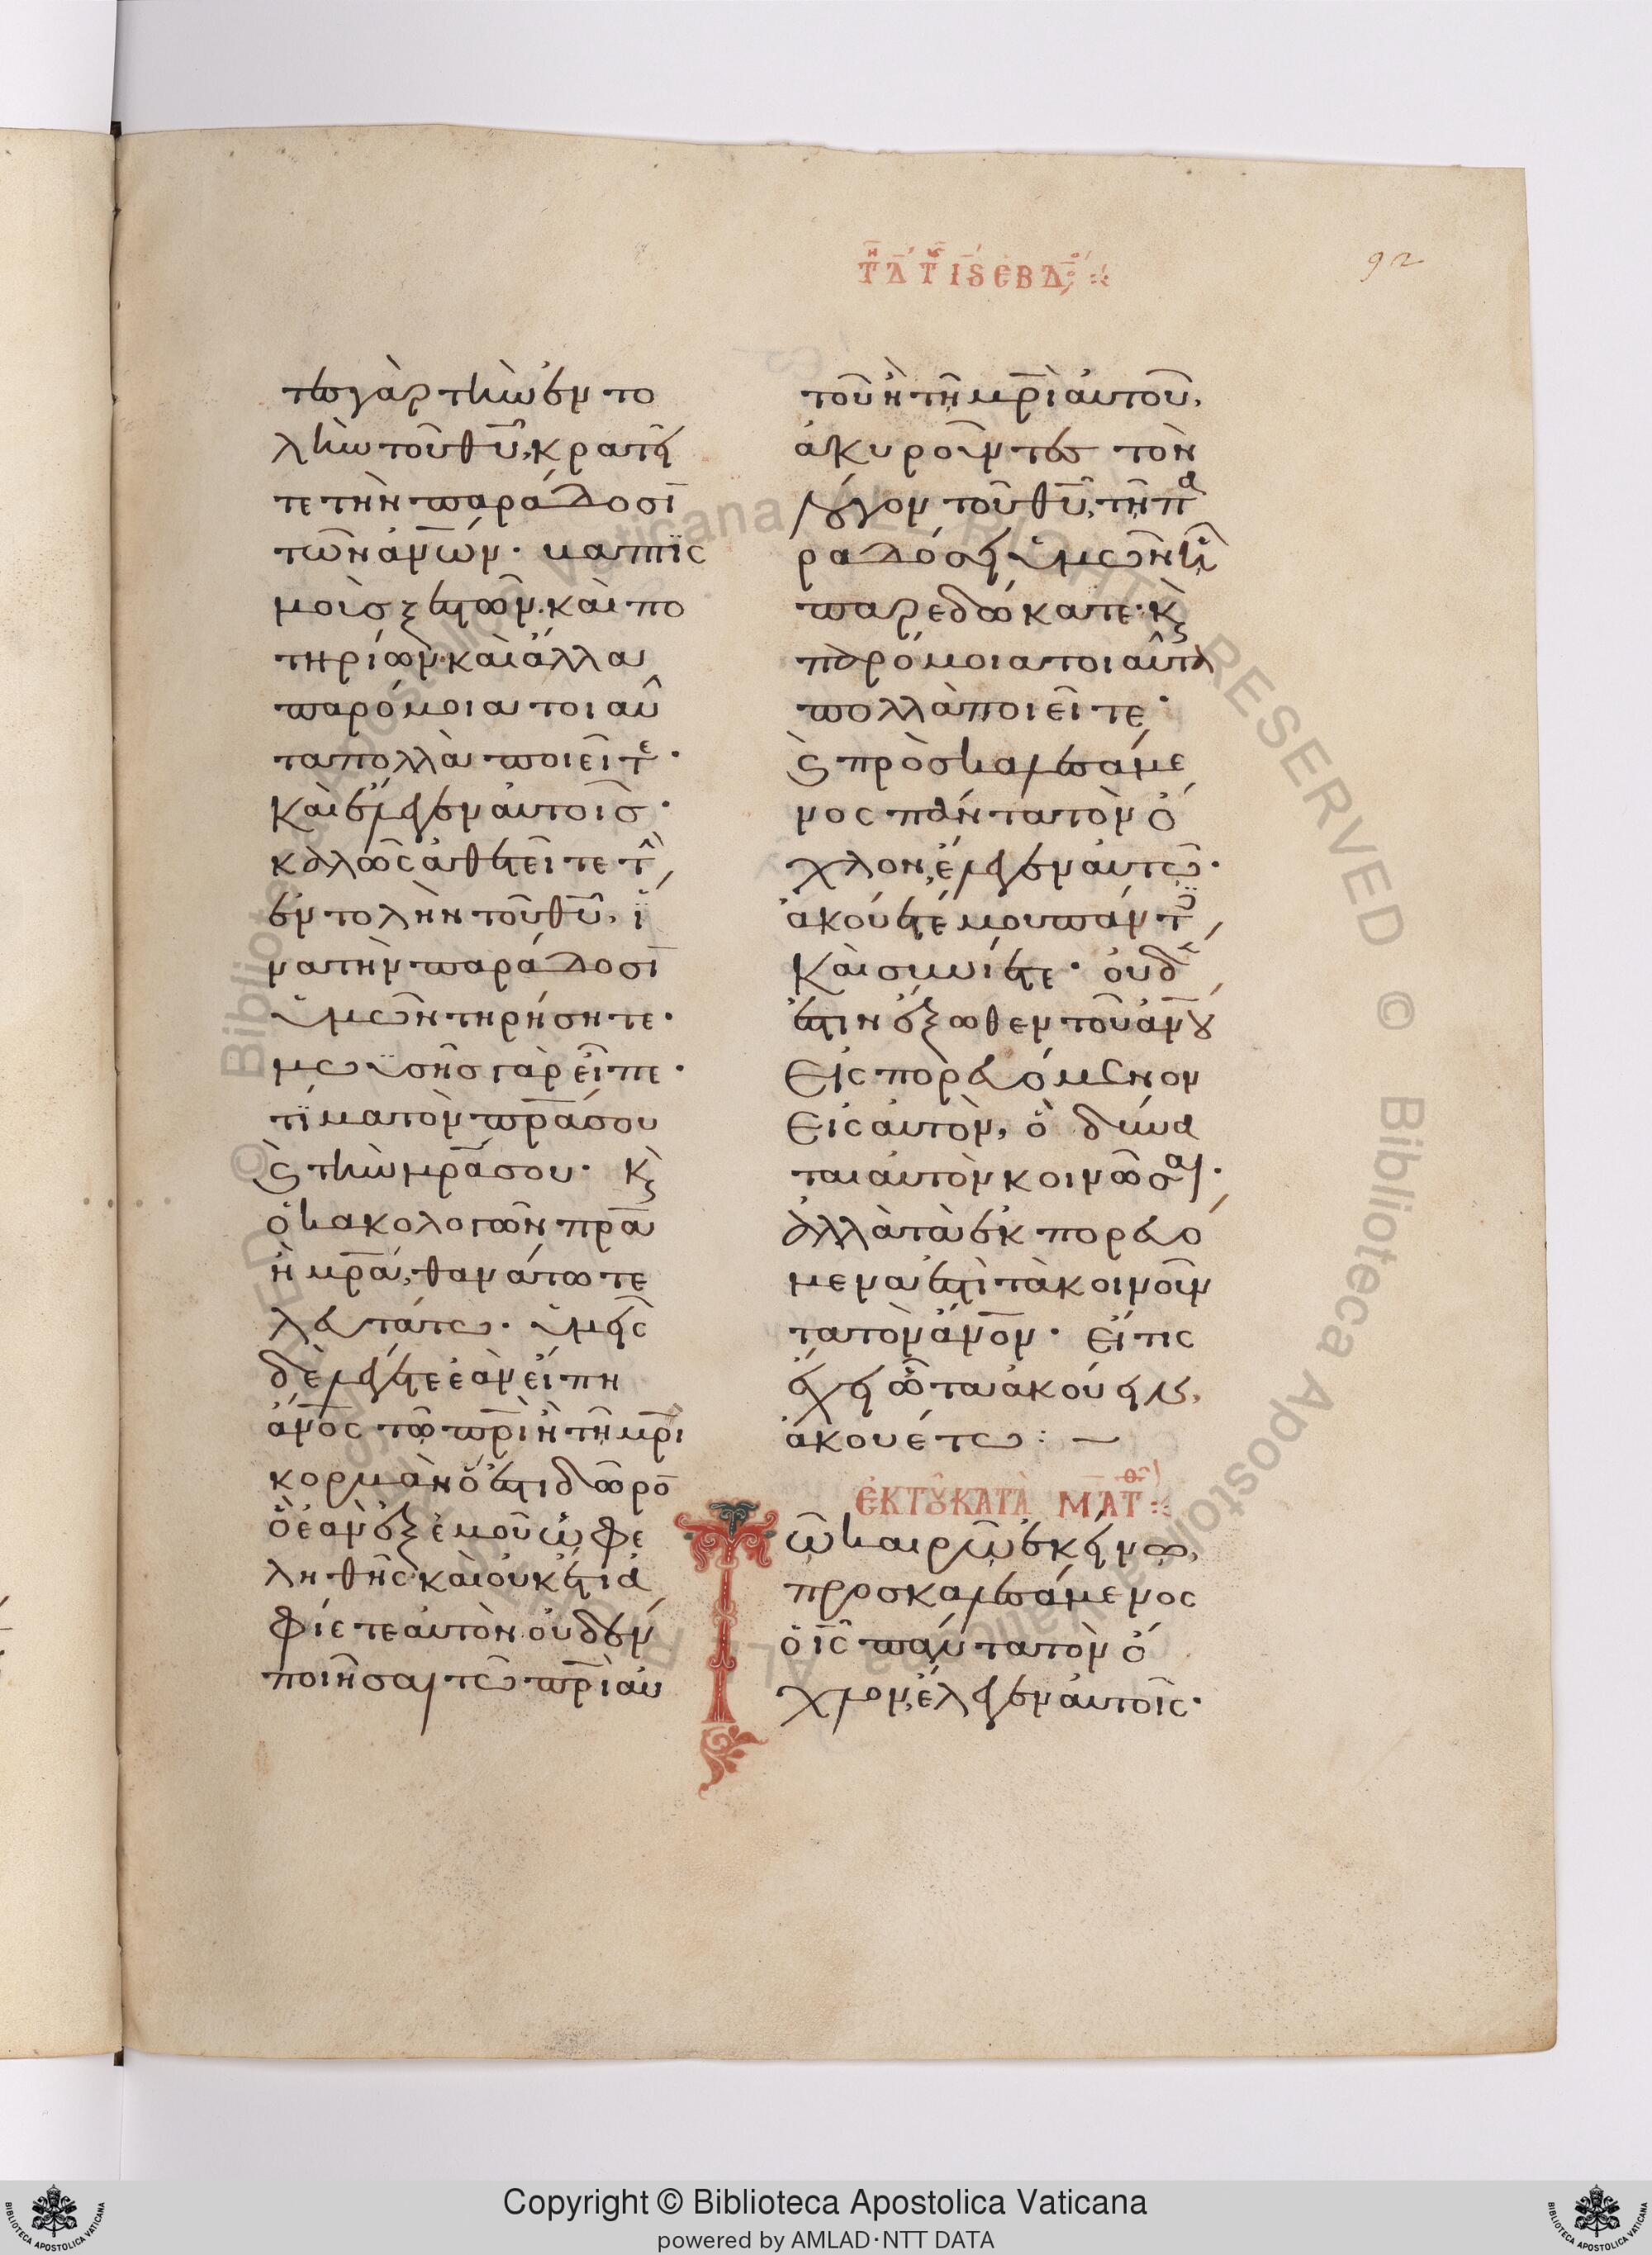 τῇ δ̄ τῆς ῑϛ ἑβδο
92
τες γὰρ τὴν ἐν το
λὴν τοῦ θῦ, κρατεῖ
τε τὴν παράδοσῑ
τῶν ἀν̅ων· βαπτϊς
μοὺς ξεστῶν· καὶ πο
τηρίων· καὶ ἄλλα
παρόμοια τοιαῦ
τα πολλὰ ποιεῖτε·
Καὶ ἔλεγεν αὐτοῖς·
καλῶς ἀθετεῖτε τὴ
ἐντολὴν τοῦ θῦ, ἵ
να τὴν παράδοσῑ
ὑμῶν τηρήσητε·
μωϋσῆς γὰρ εἶπε·
τίμα τὸν π̅ρ̅α σου
ϗ τὴν μ̅ρ̅α σου· ϗ
ὁ κακολογῶν π̅ρ̅α
ἢ μ̅ρ̅α, θανάτω τε
λευτάτω· ὑμεῖς
δὲ λέγετε ἐὰν εἴπη
ἄν̅ος τῶ π̅ρ̅ι ἢ τῆ μ̅ρ̅ι
κορβὰν ὅ ἐστι δῶρο̅
ὃ ἐὰν ἐξ ἐμοῦ ὠφε
ληθῆς· καὶ οὐκέτι ἀ
φίετε αὐτὸν οὐδὲν
ποιῆσαι τῶ π̅ρ̅ὶ αὐ
τοῦ ἢ τῆ μ̅ρ̅ὶ αὐτοῦ,
ἀκυροῦντες τὸν
λόγον τοῦ θῦ, τῆ πα
ραδόσει ὑμῶν ἧ
παρεδώκατε· ϗ
παρόμοια τοιαῦτα
πολλὰ ποιεῖτε·
ϗ προσκαλεσάμε
νος πάντα τὸν ὄ
χλον, ἔλεγεν αὐτῶ·
ἀκούετέ μου πάντε
Καὶ συνίετε· οὐδέ
ἐστιν ἔξωθεν τοῦ ἀν̅ου
Εἰσπορευόμενον
Εἰς αὐτὸν, ὃ δύνα
ται αὐτὸν κοινῶσαι·
ἀλλὰ τὰ ἐκπορευό
μενα ἐστὶ τὰ κοινοῦν
τα τὸν ἄν̅ον· εἴ τις
ἔχει ὦτα ἀκούειν,
ἀκουέτω: —
ἐκ τοῦ κατὰ Μ̅α̅τθ
Τῶ καιρῶ ἐκείνω,
προσκαλεσάμενος
ὁ ι̅ς̅ πάντα τὸν ὄ
χλον, ἔλεγεν αὐτοῖς·
Copyright © Biblioteca Apostolica Vaticana
powered by AMLAD·NTT DATA